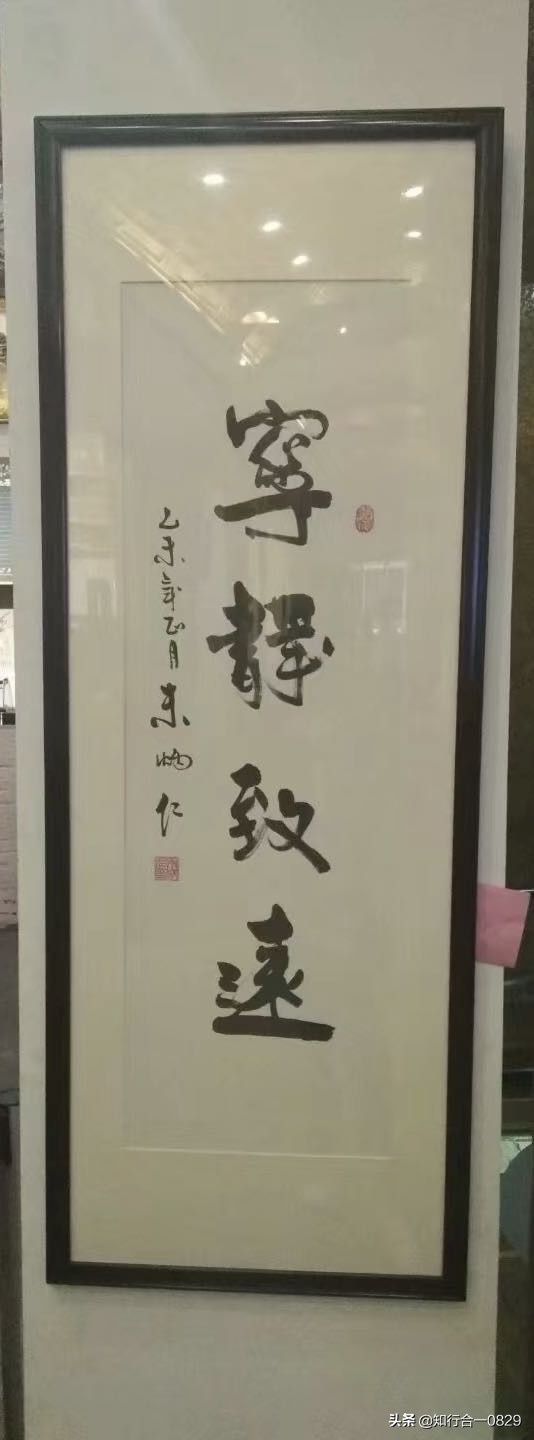 寧靜致遠
乙未年正月 朱炳仁
头条 @知行合一0829